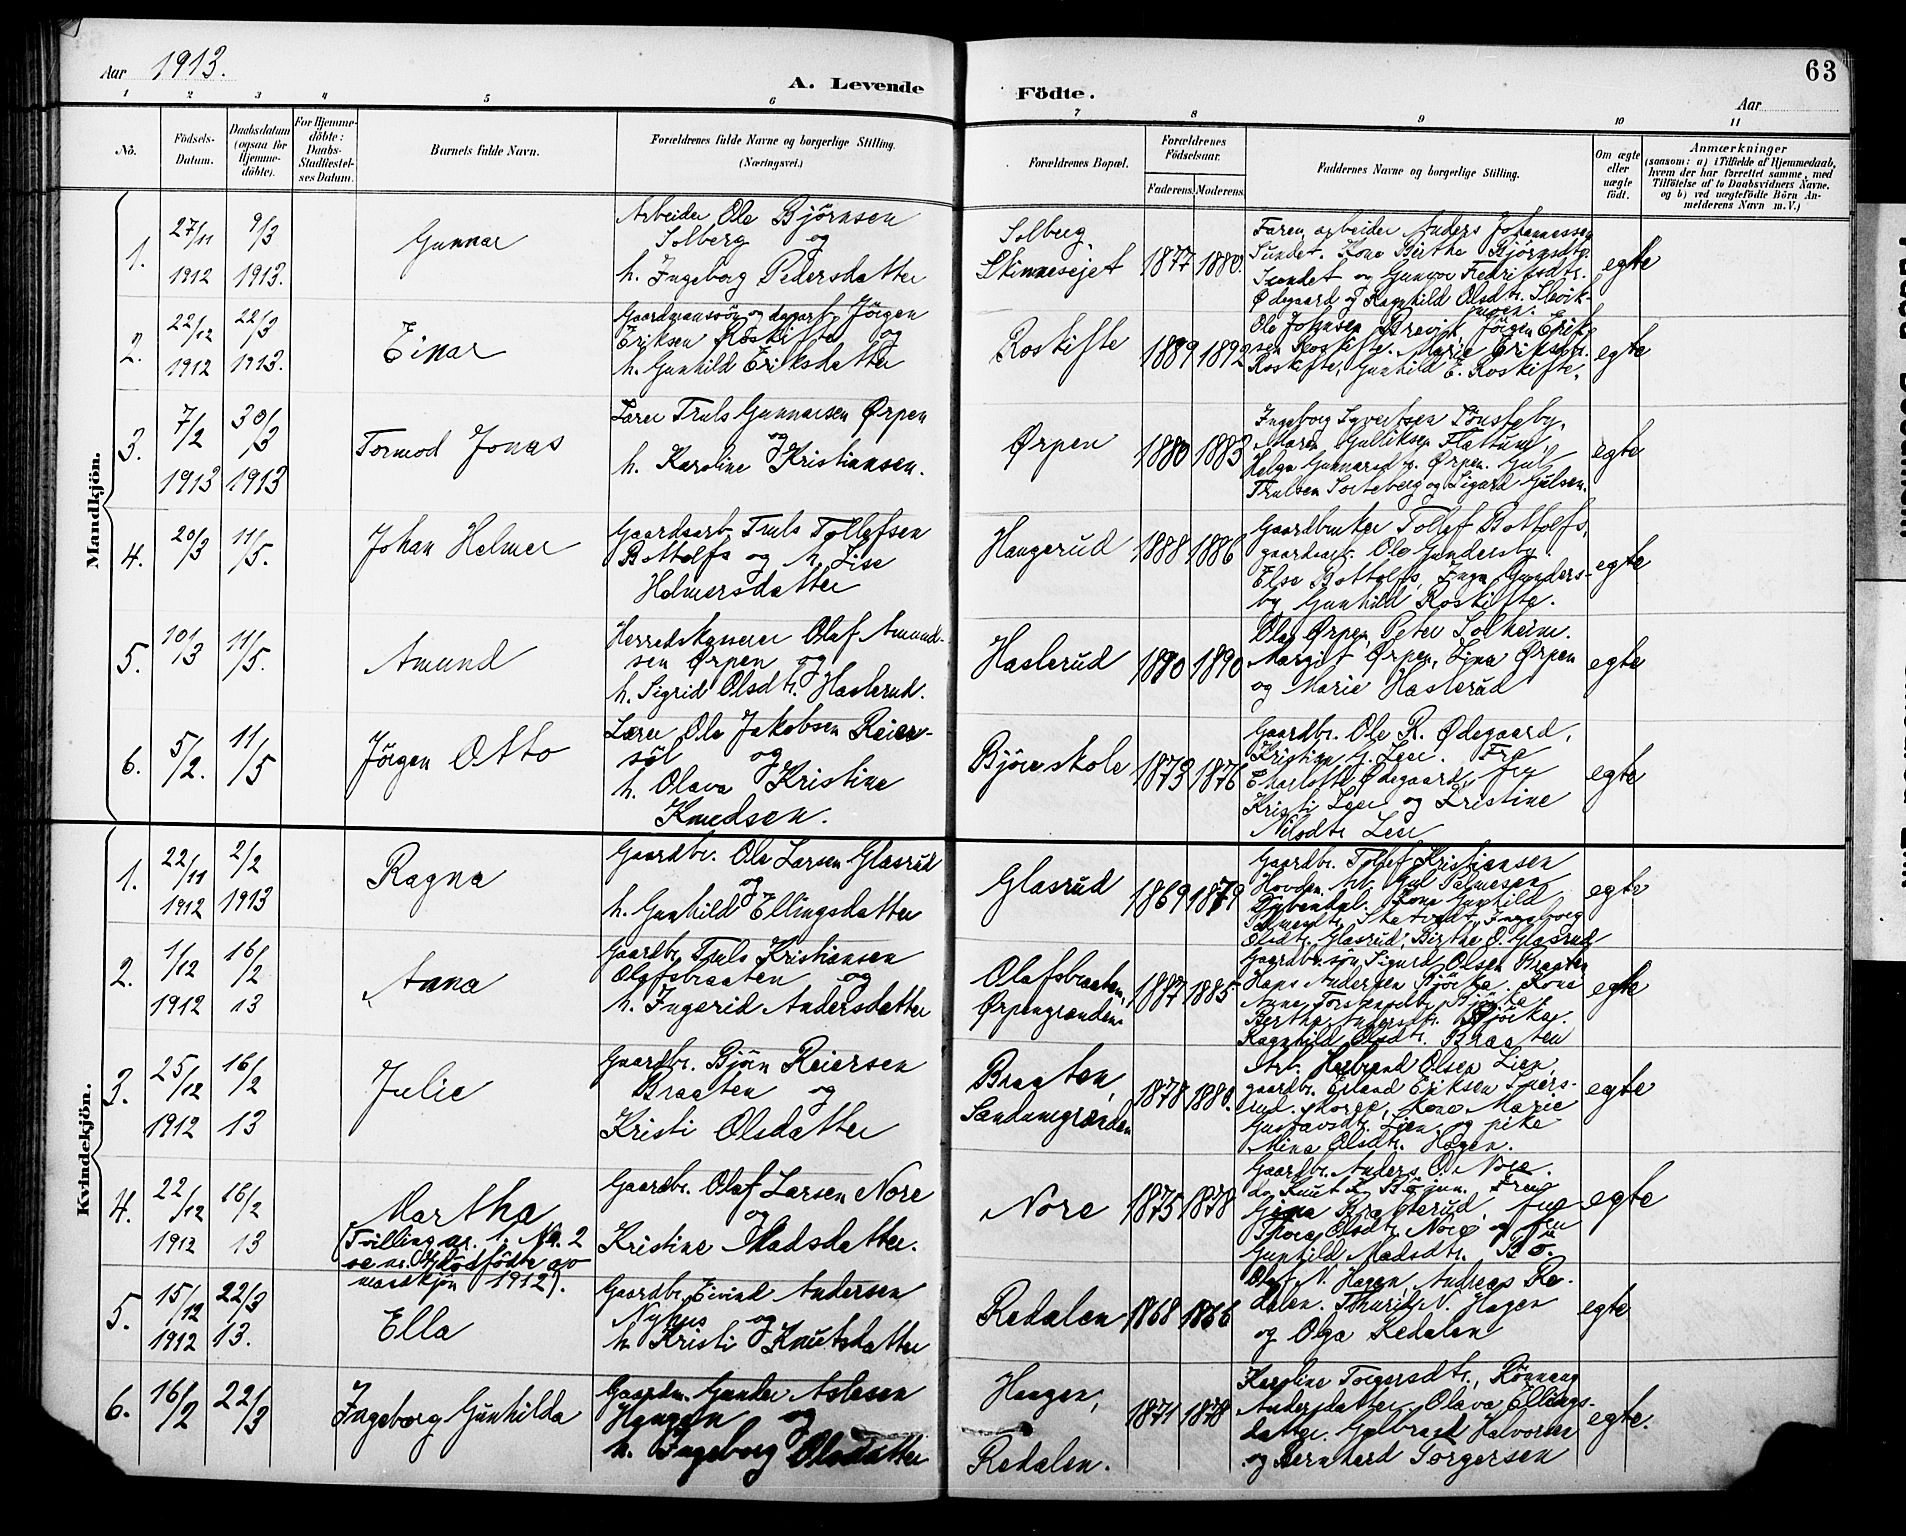 Aar 1913.
A. Levende
Födte.
Aar
63
1 2 3 4 5 6 7 8 9 10 11
No.
Födsels-Datum.
Daabsdatum (ogsaa for Hjemme-döbte).
For Hjemme-döbte: Daabs-Stadfæstel-ses Datum.
Barnets fulde Navn.
Forældrenes fulde Navne og borgerlige Stilling.
(Næringsvei.)
Forældrenes Bopæl.
Forældrenes Födselsaar.
Faderens. Moderens.
Faddernes Navne og borgerlige Stilling.
Om ægte eller uægte födt.
Anmærkninger
(saasom: a) i Tilfælde af Hjemmedaab, hvem der har forrettet samme, med Tilföielse af to Daabsvidners Navne, og b) ved uægtefödte Börn An-melderens Navn m. V.)
Mandkjön.
1. 27/11 1912 9/3 1913. Gunnar
Arbeider Ole Björnsen
Solberg og
h. Ingeborg Pedersdatter
Solberg, 1877 1880.
Faren, arbeider Anders Johannessen
Sundet. Kone Birthe Bjørnsdtr.
Sundet og Gunvor Fredriksdtr.
Ødegaard og Ragnhild Olsdtr.
egte
2. 22/12 1912 22/3 1913. Einar
Gaardmandssön og dagarb. Jörgen
Eriksen Roskifte og
h. Gunhild Eriksdatter
Roskifte 1889 1892
Ole Johnsen Brevik, Jörgen Erik-
sen Roskifte. Marie Eriksdtr.
Roskifte, Gunhild E. Roskifte.
egte
3. 7/2 1913 30/3 1913 Tormod Jonas
Lærer Truls Gunnarsen Ørpen
og
h. Karoline Kristiansen.
Ørpen 1880 1883
Ingeborg Syvertsen Tönsteby,
Maren Gulliksen Flattum,
Helga Gunnarsd. Ørpen. Gul
Trulsen Sorteberg og Sigurd Gulsen.
egte
4. 20/3 11/5. Johan Helmer
Gaardsarb. Truls Tollefsen
Bottolfs og h. Lise
Helmersdatter
Haugerud 1888 1886
Gaardbruker Tollef Bottolfs,
gaardsarb. Ole Gundersby.
Else Bottolfs, Inga Gunders-
by Gunhild Roskifte.
egte
5. 10/3 11/5. Amund
Herredskasserer Olaf Amund-
sen Ørpen og
h. Sigrid Olsdtr. Haslerud.
Haslerud 1880 1890
Olaf Ørpen, Peter Solheim.
Margit Ørpen, Lina Ørpen
og Marie Haslerud
egte
6. 5/2. 11/5 Jörgen Otto
Lærer Ole Jakobsen Reier-
söl og
h. Olava Kristine
Knudsen.
Björe skole 1873 1876
Gaardbr. Ole R. Ødegaard,
Kristian G. Lere. Fru
Charlotte Ødegaard, frk
Kristi Lere og Kristine
Nilsdtr. Lere
egte
Kvindekjön.
1. 22/11 1912 2/2 1913 Ragna
Gaardbr. Ole Larsen Glasrud
og
h. Gunhild Ellingsdatter
Glasrud 1869 1879
Gaardbr. Tollef Kristiansen
Hovden. Gul Palmesen
Kone Gunhild
Ingeborg
Olsdtr. Glasrud, Birthe O. Glasrud
egte
2. 1/12 1912 16/2 13 Anna
Gaardbr. Truls Kristiansen
Olafsbraaten og
h. Ingerid Andersdatter
Olafsbraaten,
Ørpengrænden 1887 1885
Gaardbr.sön Sigurd Olsen Braaten
Hans Andersen Björka. Kone
Anne Torstensdtr. Björka
Berthe Andersdtr. Björka.
Ragnhild Olsdtr. Braaten
egte
3. 25/12 1912 16/2 13 Julie
Gaardbr. Björn Reiersen
Braaten og
Kristi Olsdatter
Braaten,
Sandumgrænden 1878 1880.
Arb. Herbrand Olsen Lien,
gaardbr. Erland Eriksen Spers-
rud. Kone Marie
Gustavsdtr. Lien, og pike
Mina Olsdtr. Hagen.
egte
4. 22/12 1912 16/2 13 Martha
(Tvilling nr. 1. No. 2
se nr. dödfödte av
mandkjön 1912).
Gaardbr. Olaf Larsen Nore
og
Kristine Madsdatter.
Nore 1875 1878
Gaardbr. Anders O. Nore.
do. Knut K. Böjun. Fru
Gina Braaterud, frk
Thora Olsdtr. Nore og frk
Gunhild Madsdtr. Bö.
egte
5. 15/12 1912 22/3 13. Ella
Gaardbr. Eivind Andersen
Nyhus og
h. Kristi Knutsdatter
Redalen 1868 1866
Olaf N. Hagen, Andreas Re-
dalen. Thurid N. Hagen
og Olga Redalen
egte
6. 16/2 22/3 Ingeborg Gunhilda
Gaardm. Gunder Aslesen
Haugen og
h. Ingeborg Olsdatter
Haugen,
Redalen. 1871 1878
Karoline Torgersdtr., Rönnaug
Andersdatter. Olava Ellings-
datter. Gulbrand Halvorsen
og Bernhard Torgersen
egte.